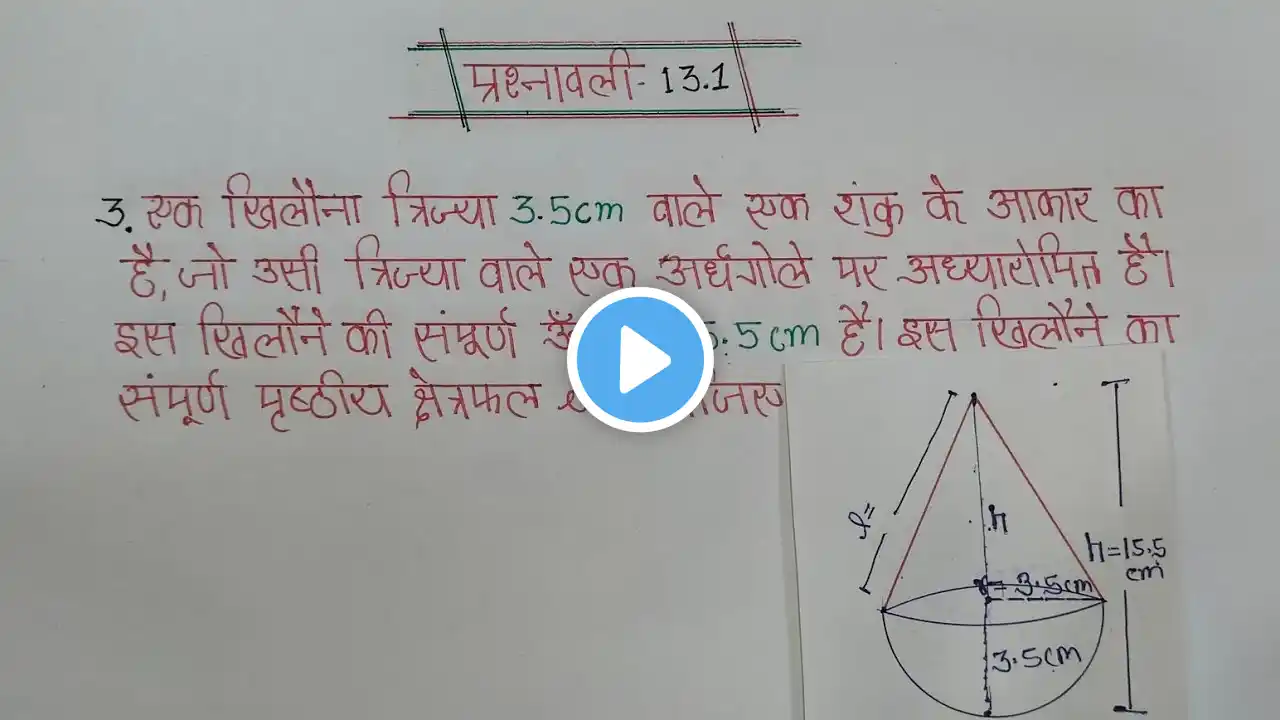 प्रश्नावली - 13.1
3. एक खिलौना त्रिज्या 3.5cm वाले एक शंकु के आकार का
है, जो उसी त्रिज्या वाले एक अर्धगोले पर अध्यारोपित है।
इस खिलौने की संपूर्ण .5cm है। इस खिलौने का
संपूर्ण पृष्ठीय क्षेत्रफल
h
h=15.5
cm
r=3.5cm
3.5cm